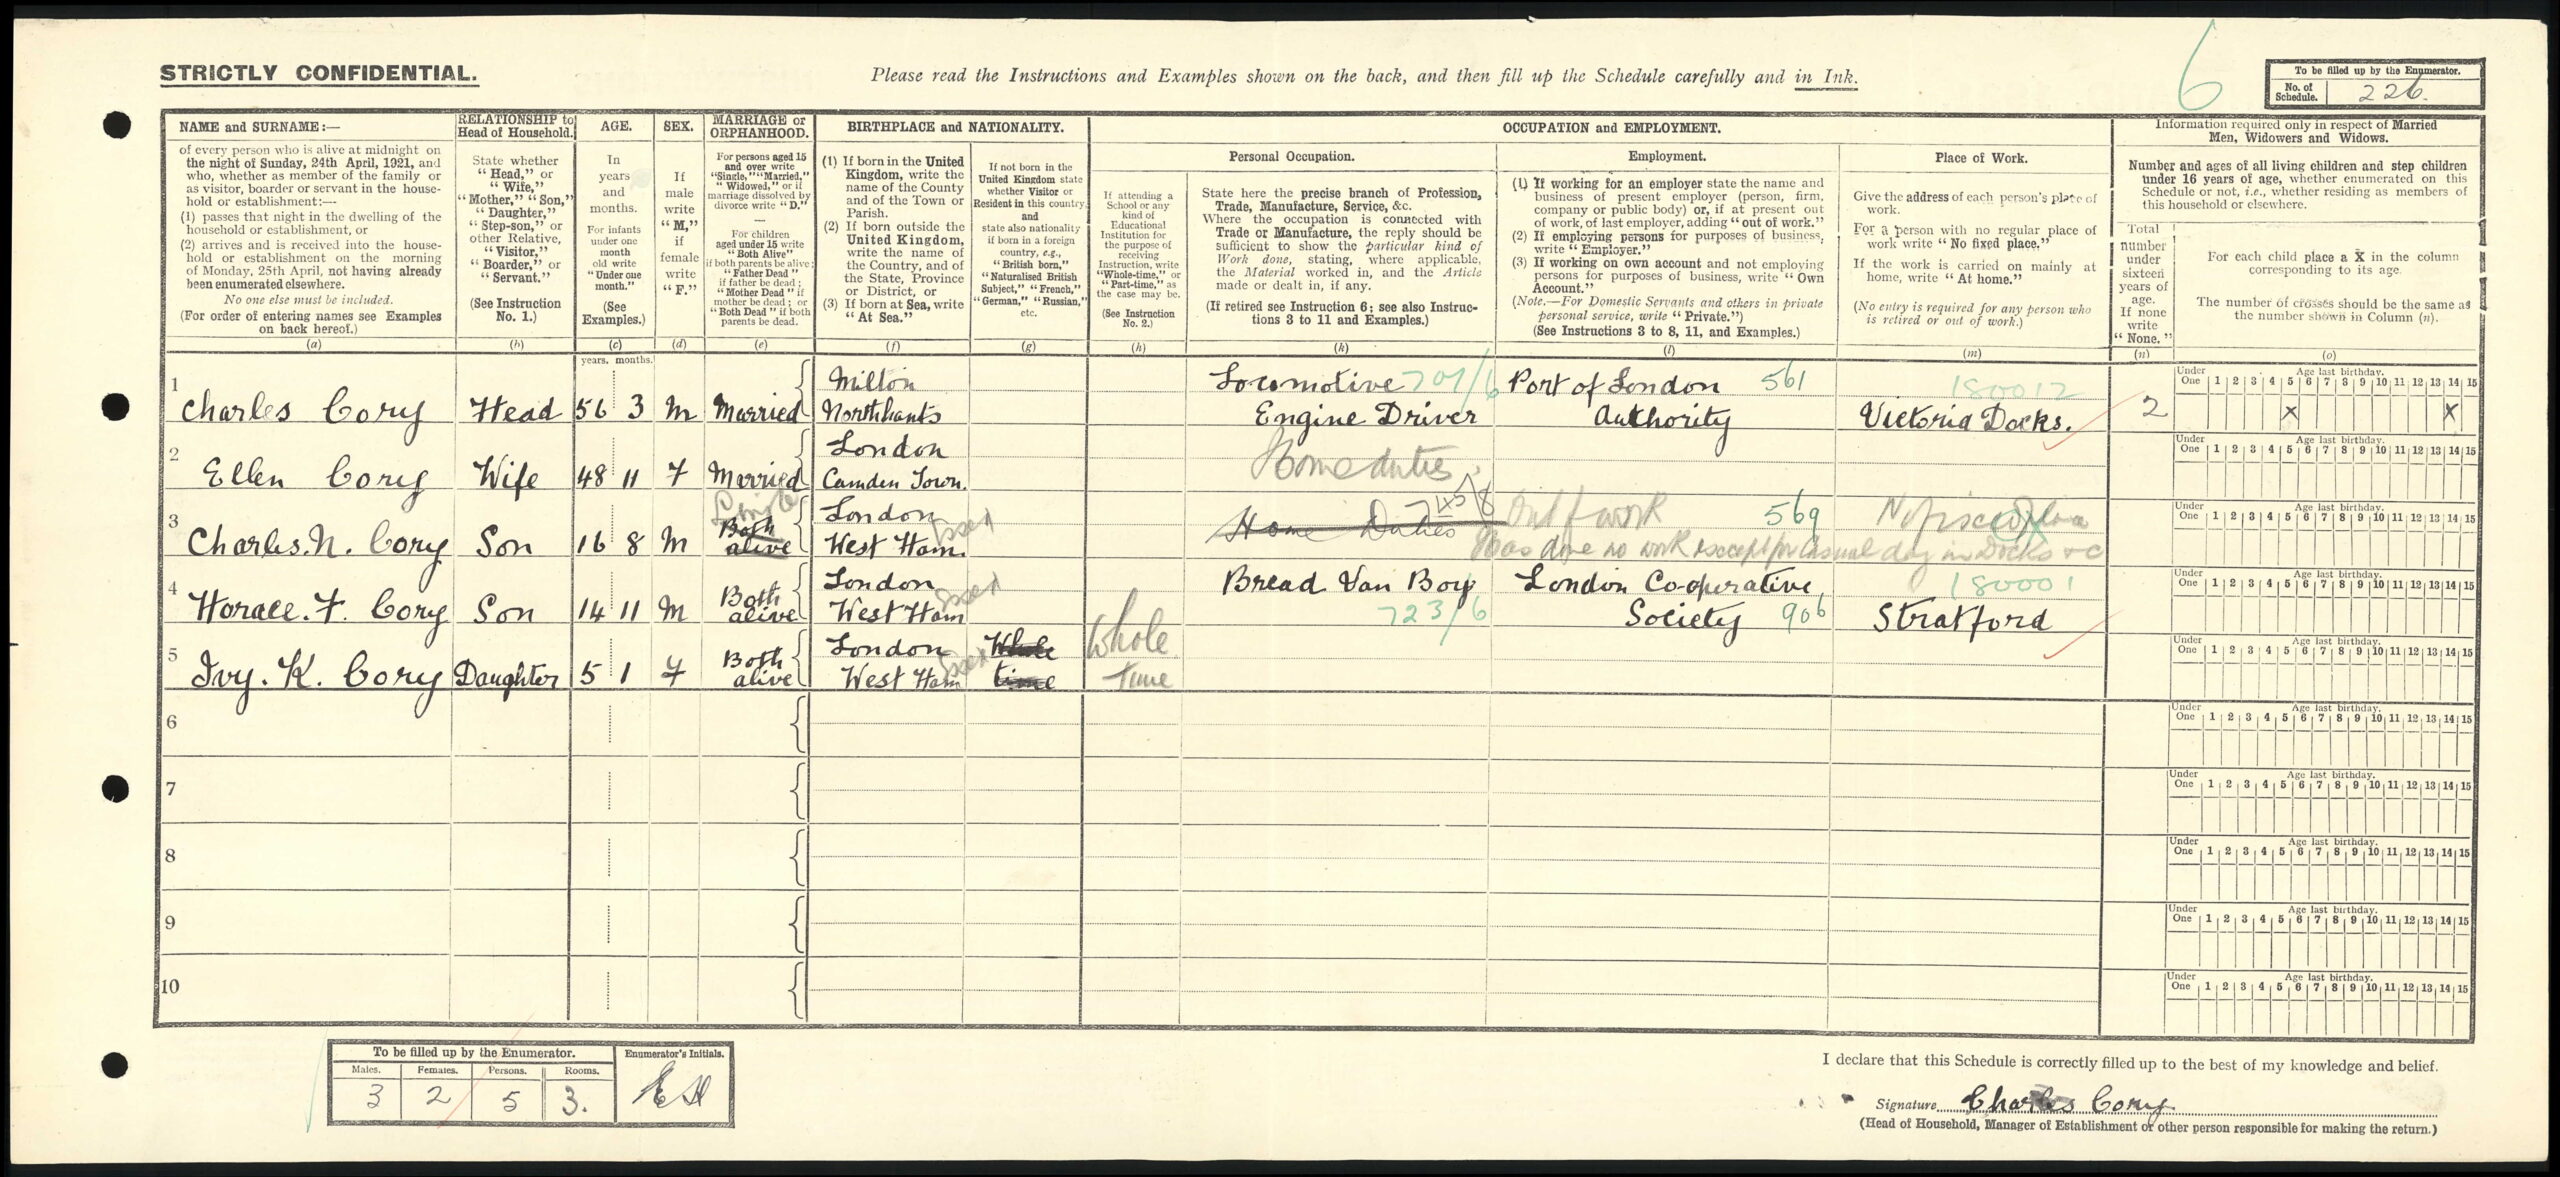 STRICTLY CONFIDENTIAL.
Please read the Instructions and Examples shown on the back, and then fill up the Schedule carefully and in Ink.
6
To be filled up by the Enumerator.
No. of Schedule. 226.
NAME and SURNAME:—
of every person who is alive at midnight on
the night of Sunday, 24th April, 1921, and
who, whether as member of the family or
as visitor, boarder or servant in the house-
hold or establishment:—
(1) passes that night in the dwelling of the
household or establishment, or
(2) arrives and is received into the house-
hold or establishment on the morning
of Monday, 25th April, not having already
been enumerated elsewhere.
No one else must be included.
(For order of entering names see Examples
on back hereof.)
(a)
RELATIONSHIP to
Head of Household.
State whether
"Head," or
"Wife,"
"Mother," "Son,"
"Daughter,"
"Step-son," or
other Relative,
"Visitor,"
"Boarder," or
"Servant."
(See Instruction
No. 1.)
(b)
AGE.
In
years
and
months.
For infants
under one
month
old write
"Under one
month."
(See
Examples.)
(c)
SEX.
If
male
write
"M,"
if
female
write
"F."
(d)
MARRIAGE or
ORPHANHOOD.
For persons aged 15
and over write
"Single," "Married,"
"Widowed," or if
marriage dissolved by
divorce write "D."
—
For children
aged under 15 write
"Both Alive"
if both parents be alive;
"Father Dead"
if father be dead;
"Mother Dead" if
mother be dead; or
"Both Dead" if both
parents be dead.
(e)
BIRTHPLACE and NATIONALITY.
(1) If born in the United
Kingdom, write the
name of the County
and of the Town or
Parish.
(2) If born outside the
United Kingdom,
write the name of
the Country, and of
the State, Province
or District, or
(3) If born at Sea, write
"At Sea."
(f)
If not born in the
United Kingdom state
whether Visitor or
Resident in this country,
and
state also nationality
if born in a foreign
country, e.g.,
"British born,"
"Naturalised British
Subject," "French,"
"German," "Russian,"
etc.
(g)
OCCUPATION and EMPLOYMENT.
If attending a
School or any
kind of
Educational
Institution for
the purpose of
receiving
Instruction, write
"Whole-time," or
"Part-time," as
the case may be.
(See Instruction
No. 2.)
(h)
Personal Occupation.
State here the precise branch of Profession,
Trade, Manufacture, Service, &c.
Where the occupation is connected with
Trade or Manufacture, the reply should be
sufficient to show the particular kind of
Work done, stating, where applicable,
the Material worked in, and the Article
made or dealt in, if any.
(If retired see Instruction 6; see also Instruc-
tions 3 to 11 and Examples.)
(k)
Employment.
(1) If working for an employer state the name and
business of present employer (person, firm,
company or public body) or, if at present out
of work, of last employer, adding "out of work."
(2) If employing persons for purposes of business,
write "Employer."
(3) If working on own account and not employing
persons for purposes of business, write "Own
Account."
(Note.—For Domestic Servants and others in private
personal service, write "Private.")
(See Instructions 3 to 8, 11, and Examples.)
(l)
Place of Work.
Give the address of each person's place of
work.
For a person with no regular place of
work write "No fixed place."
If the work is carried on mainly at
home, write "At home."
(No entry is required for any person who
is retired or out of work.)
(m)
Information required only in respect of Married
Men, Widowers and Widows.
Number and ages of all living children and step children
under 16 years of age, whether enumerated on this
Schedule or not, i.e., whether residing as members of
this household or elsewhere.
Total
number
under
sixteen
years of
age.
If none
write
"None."
(n)
For each child place a X in the column
corresponding to its age.
The number of crosses should be the same as
the number shown in Column (n).
(o)
years. months.
1 Milton Locomotive 701/6 Port of London 561 180012
Charles Cory Head 56 3 M Married Northants Engine Driver Authority Victoria Docks. 2 X X
Under One 1 2 3 4 5 6 7 8 9 10 11 12 13 14 15
Age last birthday.
2 London Home duties.
Ellen Cory Wife 48 11 F Married Camden Town.
Under One 1 2 3 4 5 6 7 8 9 10 11 12 13 14 15
Age last birthday.
3 Single Both London Essex Home Duties 745/8 Out of work 569
Charles. N. Cory Son 16 8 M alive West Ham. Has done no work except for casual day in Docks &c
Under One 1 2 3 4 5 6 7 8 9 10 11 12 13 14 15
Age last birthday.
4 Both London Essex Bread Van Boy London Co-operative 180001
Horace. F. Cory Son 14 11 M alive West Ham 723/6 Society 906 Stratford
Under One 1 2 3 4 5 6 7 8 9 10 11 12 13 14 15
Age last birthday.
5 Both London Essex Whole Whole
Ivy. K. Cory Daughter 5 1 F alive West Ham time time
Under One 1 2 3 4 5 6 7 8 9 10 11 12 13 14 15
Age last birthday.
6
Under One 1 2 3 4 5 6 7 8 9 10 11 12 13 14 15
Age last birthday.
7
Under One 1 2 3 4 5 6 7 8 9 10 11 12 13 14 15
Age last birthday.
8
Under One 1 2 3 4 5 6 7 8 9 10 11 12 13 14 15
Age last birthday.
9
Under One 1 2 3 4 5 6 7 8 9 10 11 12 13 14 15
Age last birthday.
10
Under One 1 2 3 4 5 6 7 8 9 10 11 12 13 14 15
Age last birthday.
To be filled up by the Enumerator.
Males. Females. Persons. Rooms.
3 2 5 3.
Enumerator's Initials.
I declare that this Schedule is correctly filled up to the best of my knowledge and belief.
Signature Charles Cory
(Head of Household, Manager of Establishment or other person responsible for making the return.)